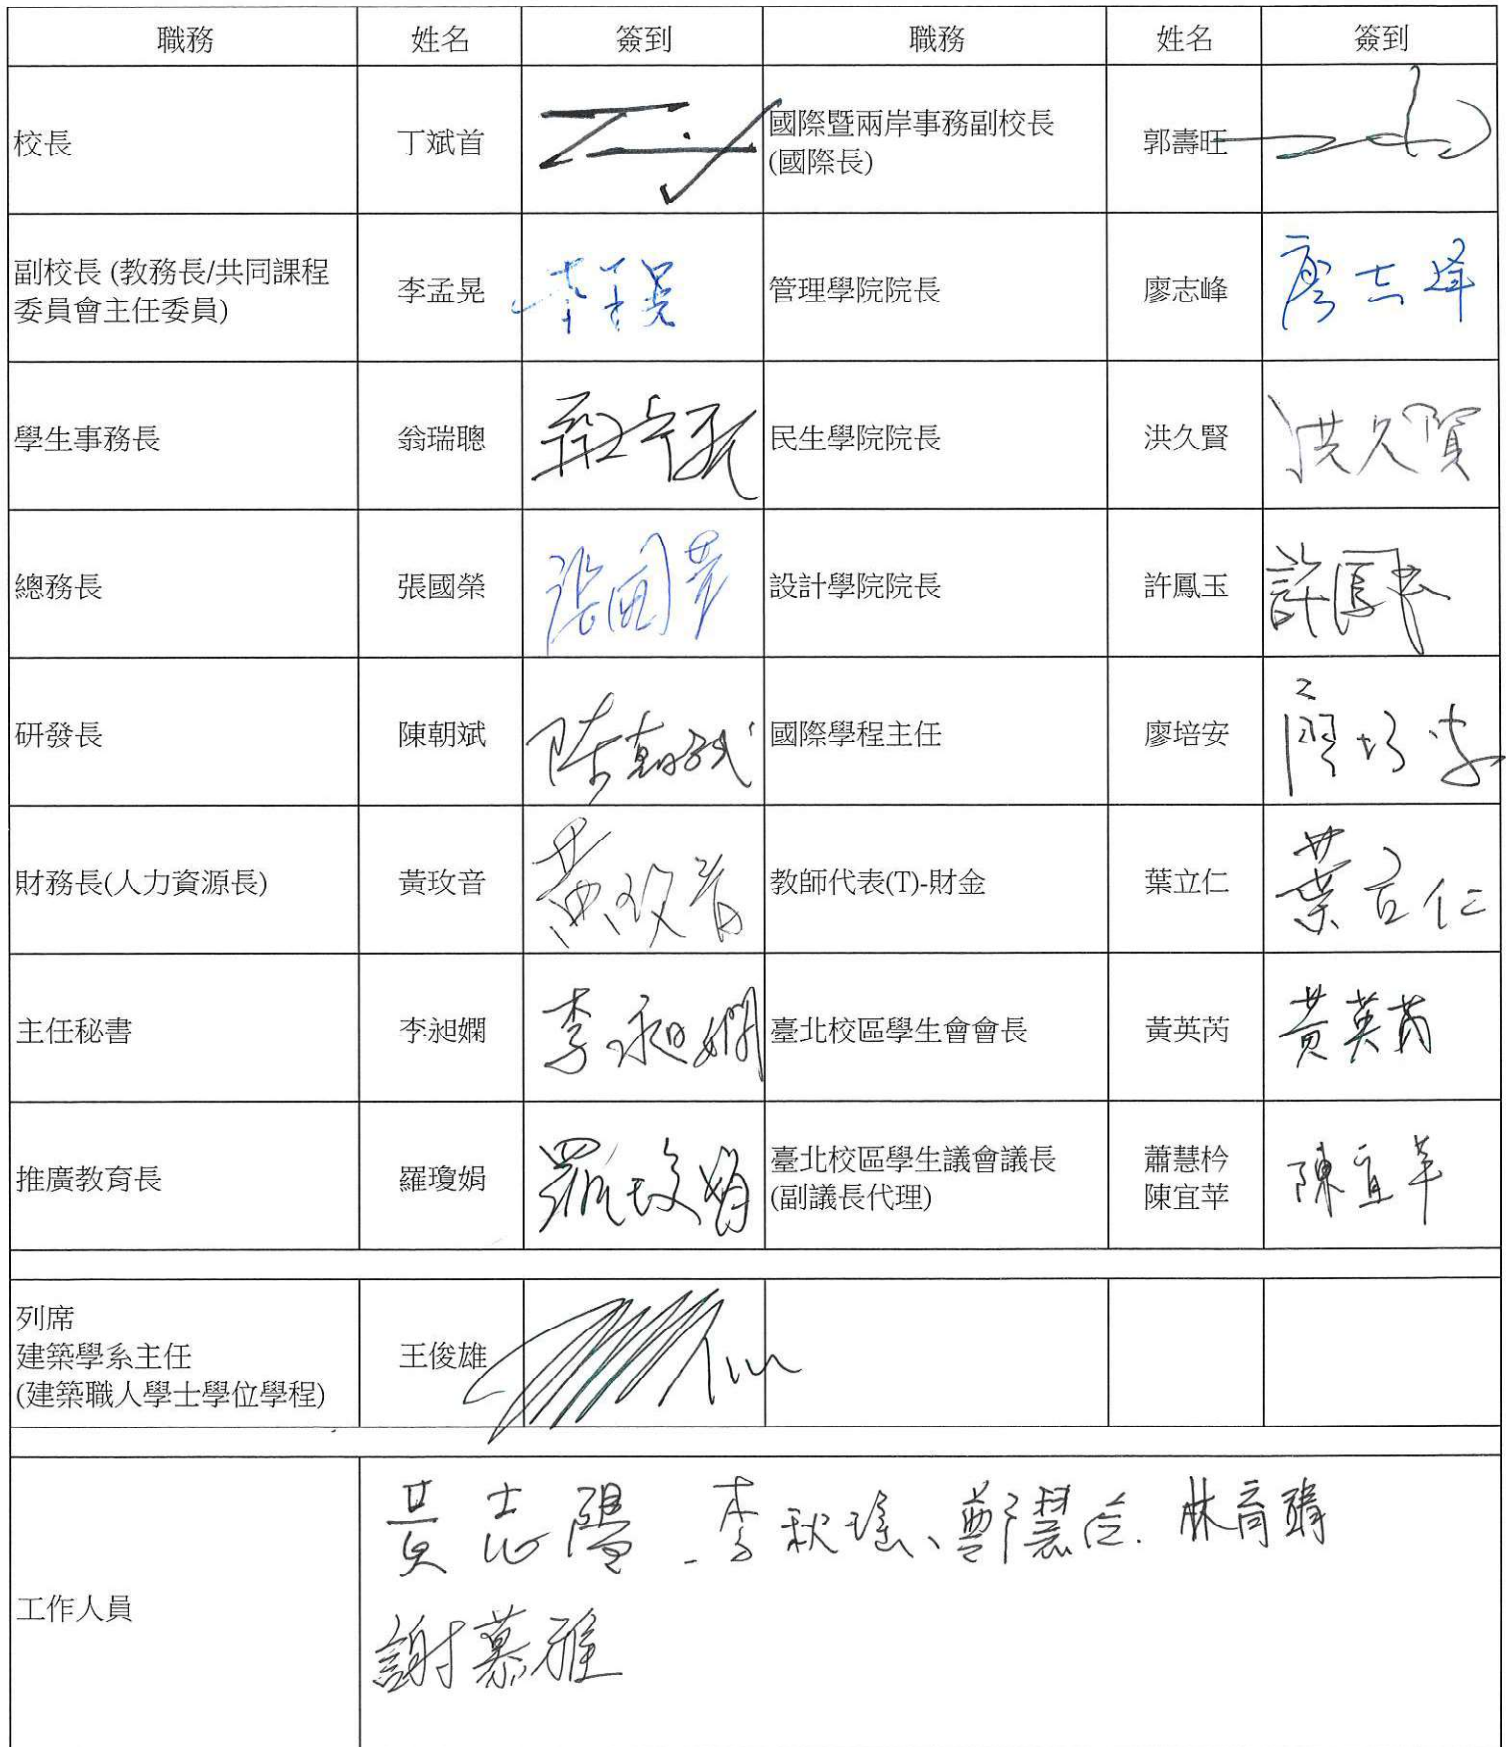 職務 姓名 簽到 職務 姓名 簽到
校長 丁斌首 國際暨兩岸事務副校長
(國際長) 郭壽旺
副校長 (教務長/共同課程
委員會主任委員) 李孟晃 李孟晃 管理學院院長 廖志峰 廖志峰
學生事務長 翁瑞聰 民生學院院長 洪久賢 洪久賢
總務長 張國榮 張國榮 設計學院院長 許鳳玉 許鳳玉
研發長 陳朝斌 陈朝斌 國際學程主任 廖培安 廖培安
財務長(人力資源長) 黃玫音 黃玫音 教師代表(T)-財金 葉立仁 葉立仁
主任秘書 李昶嫻 李昶嫻 臺北校區學生會會長 黃英芮 黃英芮
推廣教育長 羅瓊娟 羅瓊娟 臺北校區學生議會議長
(副議長代理) 蕭慧枔
陳宜苹 陳宜苹
列席
建築學系主任
(建築職人學士學位學程) 王俊雄
工作人員 黃志陽、李秋瑤、鄭慧
謝慕雅